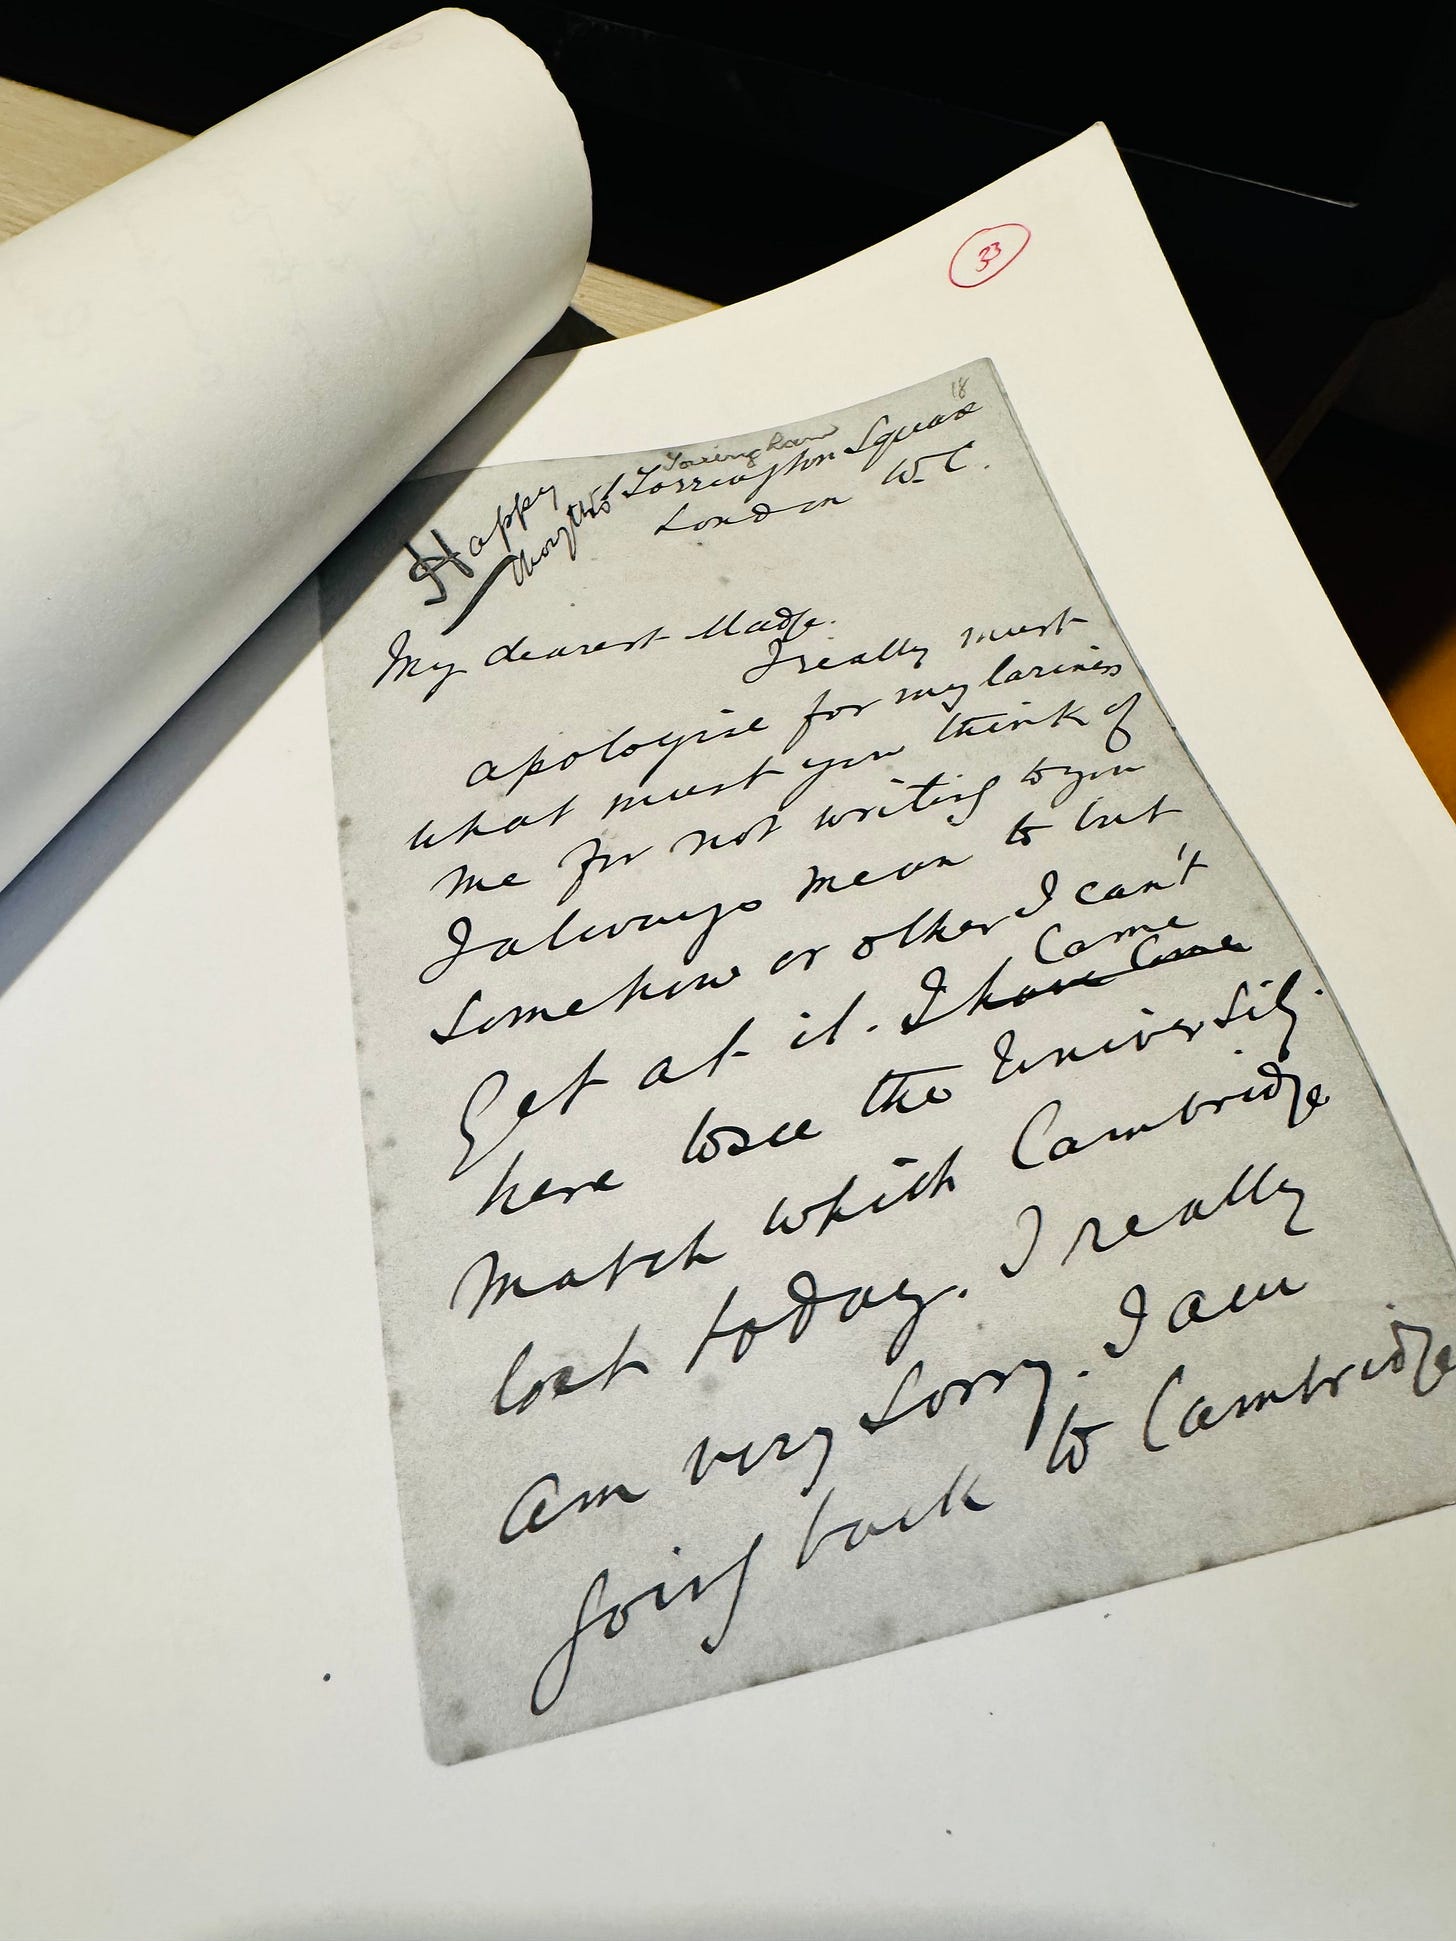 33
18
Happy
Torrington Square
London W.C.
My dearest Madge.
I really must
apologise for my laziness
what must you think of
me for not writing to you
I always mean to but
somehow or other I can't
get at it. I came
have come
here to see the University
match which Cambridge
lost today. I really
am very sorry. I am
going back to Cambridge